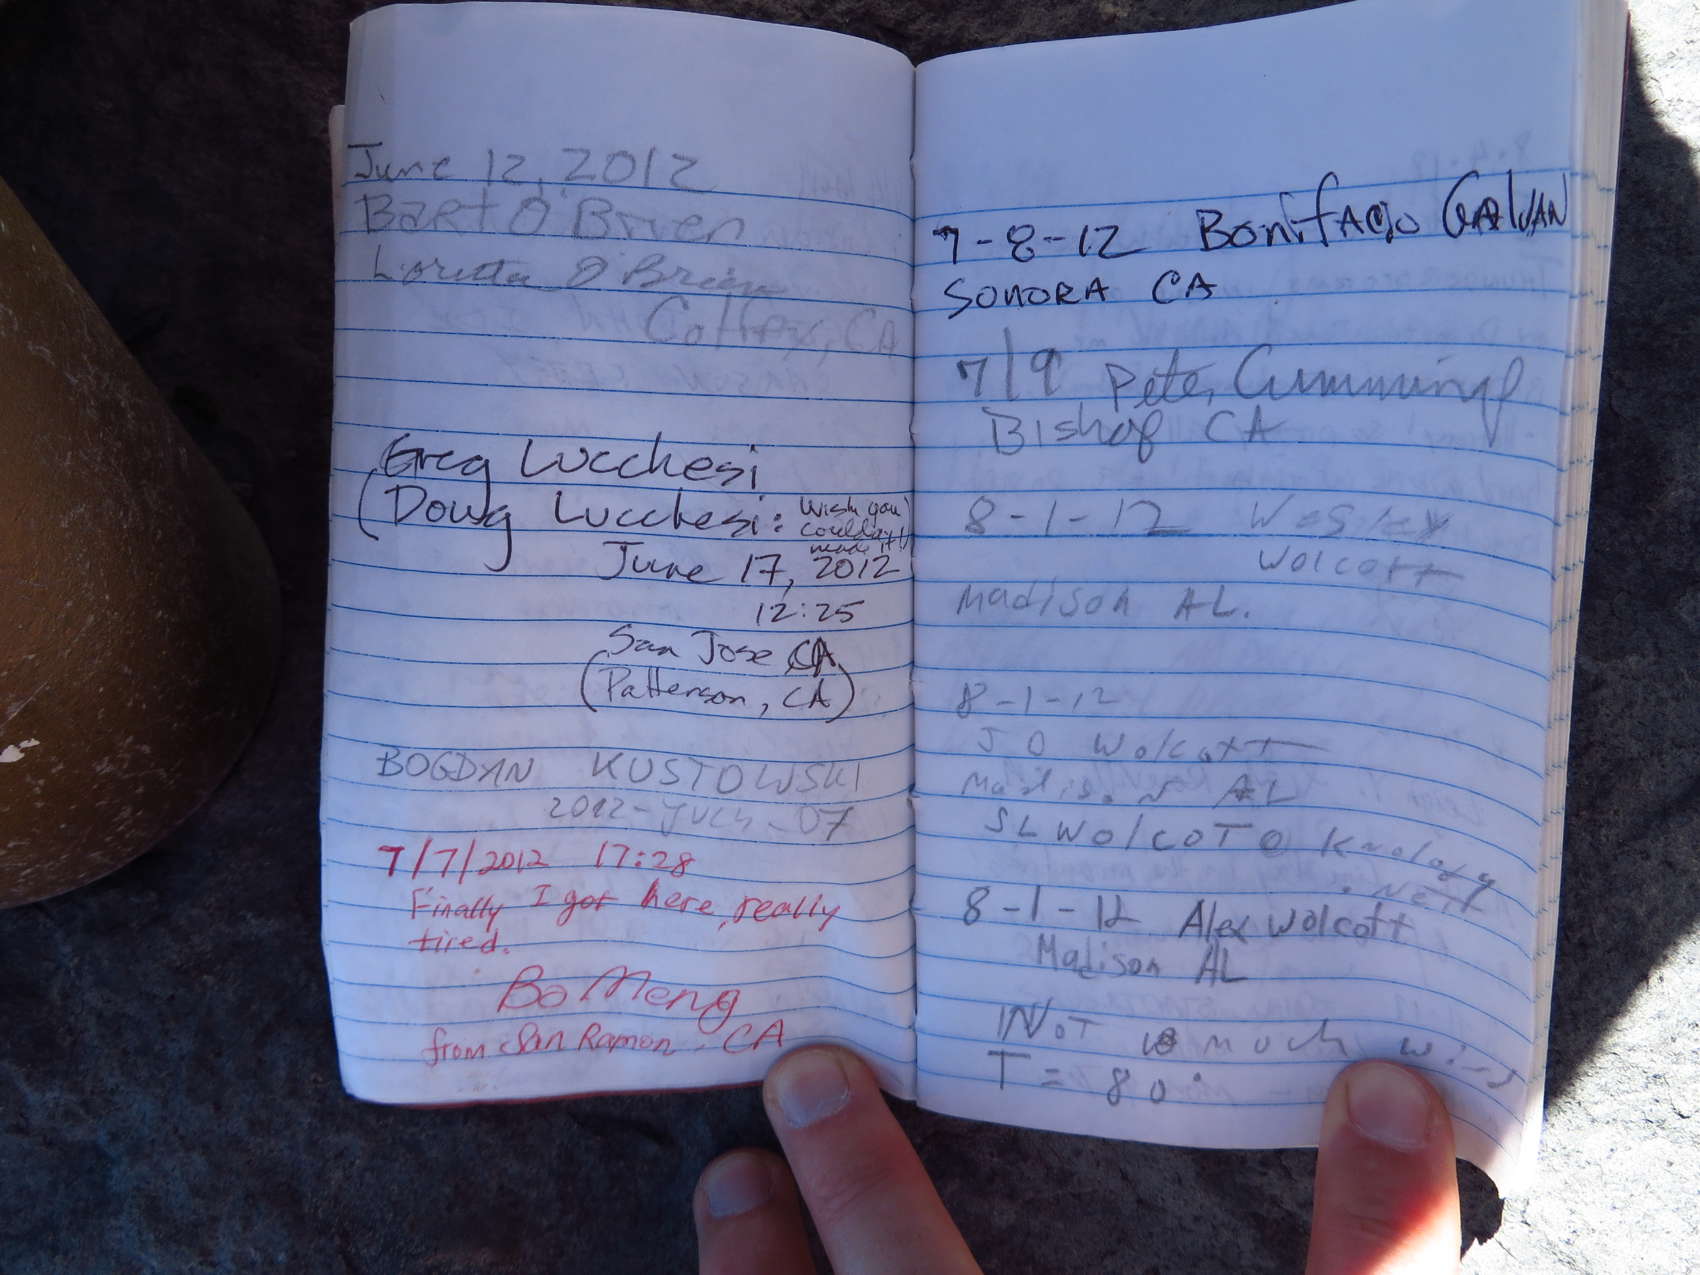 June 12, 2012
Bart O'Brien
Loretta O'Brien
Colfax, CA
Greg Lucchesi
(Doug Lucchesi: Wish you
could've
made it!)
June 17, 2012
12:25
San Jose CA
(Patterson, CA)
BOGDAN KUSTOWSKI
2012-July-07
7/7/2012 17:28
Finally I got here, really
tired.
Bo Meng
from San Ramon, CA
7-8-12 BonifAcio GAlVAN
SONORA CA
7/9 Pete Cummings
Bishop CA
8-1-12 Wesley
Wolcott
Madison AL.
8-1-12
J O Wolcott
Madison AL
SLWOlCOTT@Knology
.NET
8-1-12 Alex Wolcott
Madison AL
Not much wind
T = 80°